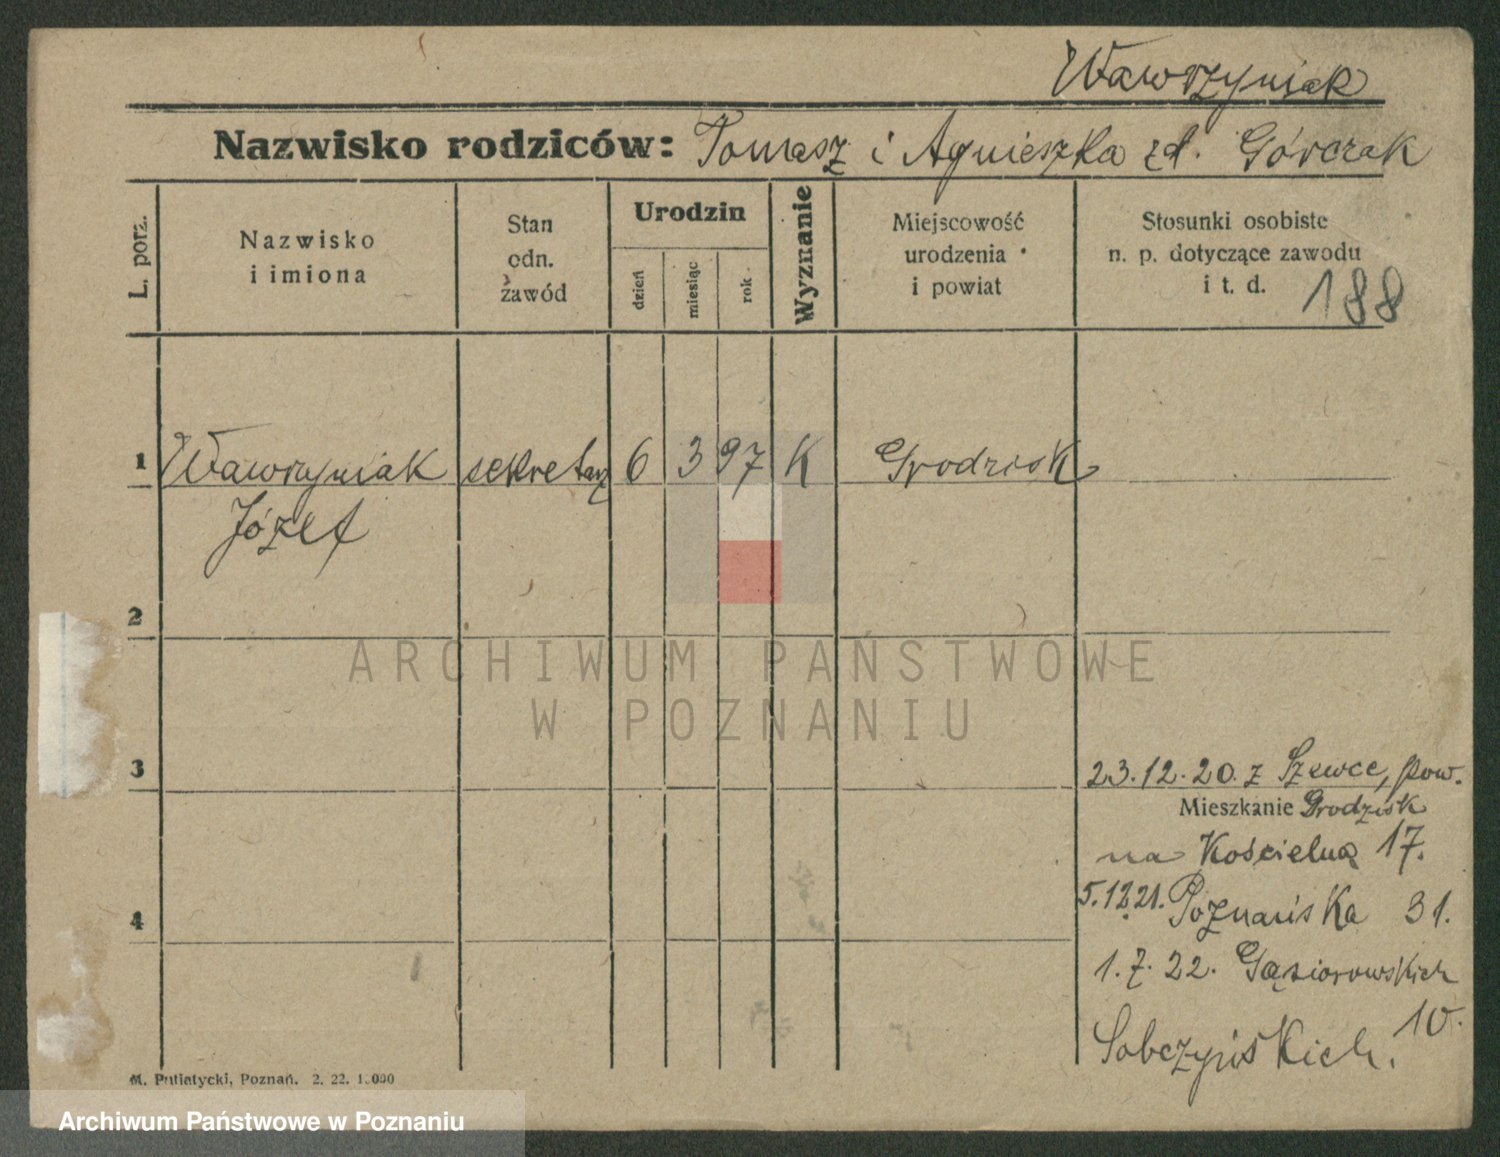 Wawrzyniak
Nazwisko rodziców: Tomasz i Agnieszka zd. Górczak
L. porz.
Nazwisko
i imiona
Stan
odn.
zawód
Urodzin
dzień
miesiąc
rok
Wyznanie
Miejscowość
urodzenia
i powiat
Stosunki osobiste
n. p. dotyczące zawodu
i t. d.
188
1 Wawrzyniak sekretarz 6 3 97 K Grodzisk
Józef
2
ARCHIWUM PAŃSTWOWE
W POZNANIU
3
23.12.20. z Szewce, pow.
Mieszkanie Grodzisk
na Kościelną 17.
4
5.12.21. Poznańska 31.
1.7.22. Gąsiorowskich
10.
Sobczyńskich.
M. Putiatycki, Poznań. 2. 22. 1.000
Archiwum Państwowe w Poznaniu